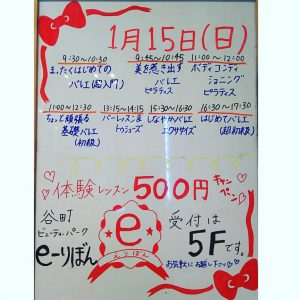 1月15日(日)
9:30〜10:30
まったくはじめての
バレエ(超入門)
9:45〜10:45
美を巻き出す
バレエ
ピラティス
11:00〜12:00
ボディコンディ
ショニング
ピラティス
11:00〜12:30
ちょっと頑張る
基礎バレエ
(初級)
13:15〜14:15
バーレッスン&
トゥシューズ
15:30〜16:30
しなやかバレエ
エクササイズ
16:30〜17:30
はじめてバレエ
(超初級)
体験レッスン 500円
キャンペーン
谷町
ビューティーパーク
e-りぼん
e
えりぼん
受付は
5Fです。
お気軽にお越し下さい